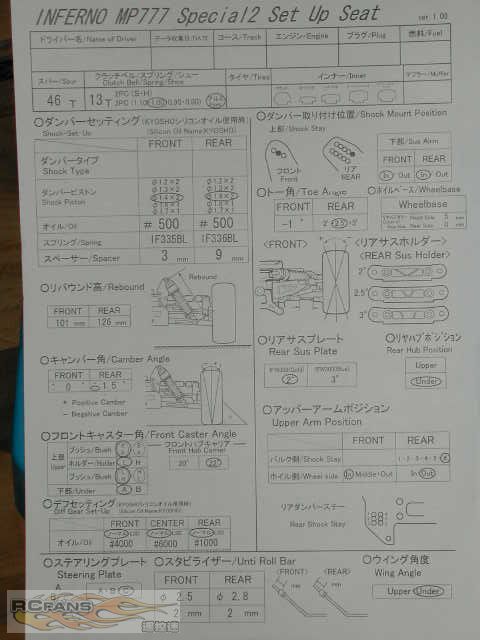 INFERNO MP777 Special2 Set Up Seat
ver 1.00
ドライバー名/Name of Driver
データ収集日/DATE
コース/Track
エンジン/Engine
プラグ/Plug
燃料/Fuel
スパー/Spur
クラッチベル/スプリング/シュー
Clutch Bell/Spring/Shoe
タイヤ/Tires
インナー/Inner
マフラー/Muffler
46 T
13 T
○ダンパーセッティング(KYOSHOシリコンオイル使用時)
Shock Set-Up (Silicon Oil Name:KYOSHO)
FRONT REAR
ダンパータイプ
Shock Type
ダンパーピストン
Shock Piston
オイル/Oil # 500 # 500
スプリング/Spring IF335BL IF336BL
スペーサー/Spacer 3 mm 9 mm
○ダンパー取り付け位置/Shock Mount Position
上部/Shock Stay
下部/Sus Arm
フロント
Front
リア
REAR
FRONT REAR
In Out In Out
○トー角/Toe Angle
FRONT REAR
-1° 2° 2.5° 3°
○ホイルベース/Wheelbase
Wheelbase
<FRONT>
<リアサスホルダー>
<REAR Sus Holder>
2°
2.5°
3°
○リバウンド高/Rebound
Rebound
FRONT REAR
101 mm 126 mm
○キャンバー角/Camber Angle
FRONT REAR
0° 1.5°
+ Positive Camber
- Negative Camber
○リアサスプレート
Rear Sus Plate
2° 3°
○リヤハブポジション
Rear Hub Position
Upper
Under
○フロントキャスター角/Front Caster Angle
上部
Upper
ブッシュ/Bush
ホルダー/Holder L H
ブッシュ/Bush
下部/Under A B
フロントハブキャリア
Front Hub Carrier
20° 22°
○アッパーアームポジション
Upper Arm Position
FRONT REAR
バルク側/Shock Stay
ホイル側/Wheel side In Middle Out In Out
リアダンパーステー
Rear Shock Stay
○デフセッティング(KYOSHOシリコンオイル使用時)
Diff Gear Set-Up (Silicon Oil Name:KYOSHO)
FRONT CENTER REAR
オイル/Oil #4000 #6000 #1000
○ステアリングプレート
Steering Plate
A
B
A・B C
○スタビライザー/Unti Roll Bar
FRONT REAR
φ 2.5 φ 2.8
2 mm 2 mm
<FRONT> <REAR>
mm mm
○ウイング角度
Wing Angle
Upper Under
RCfans